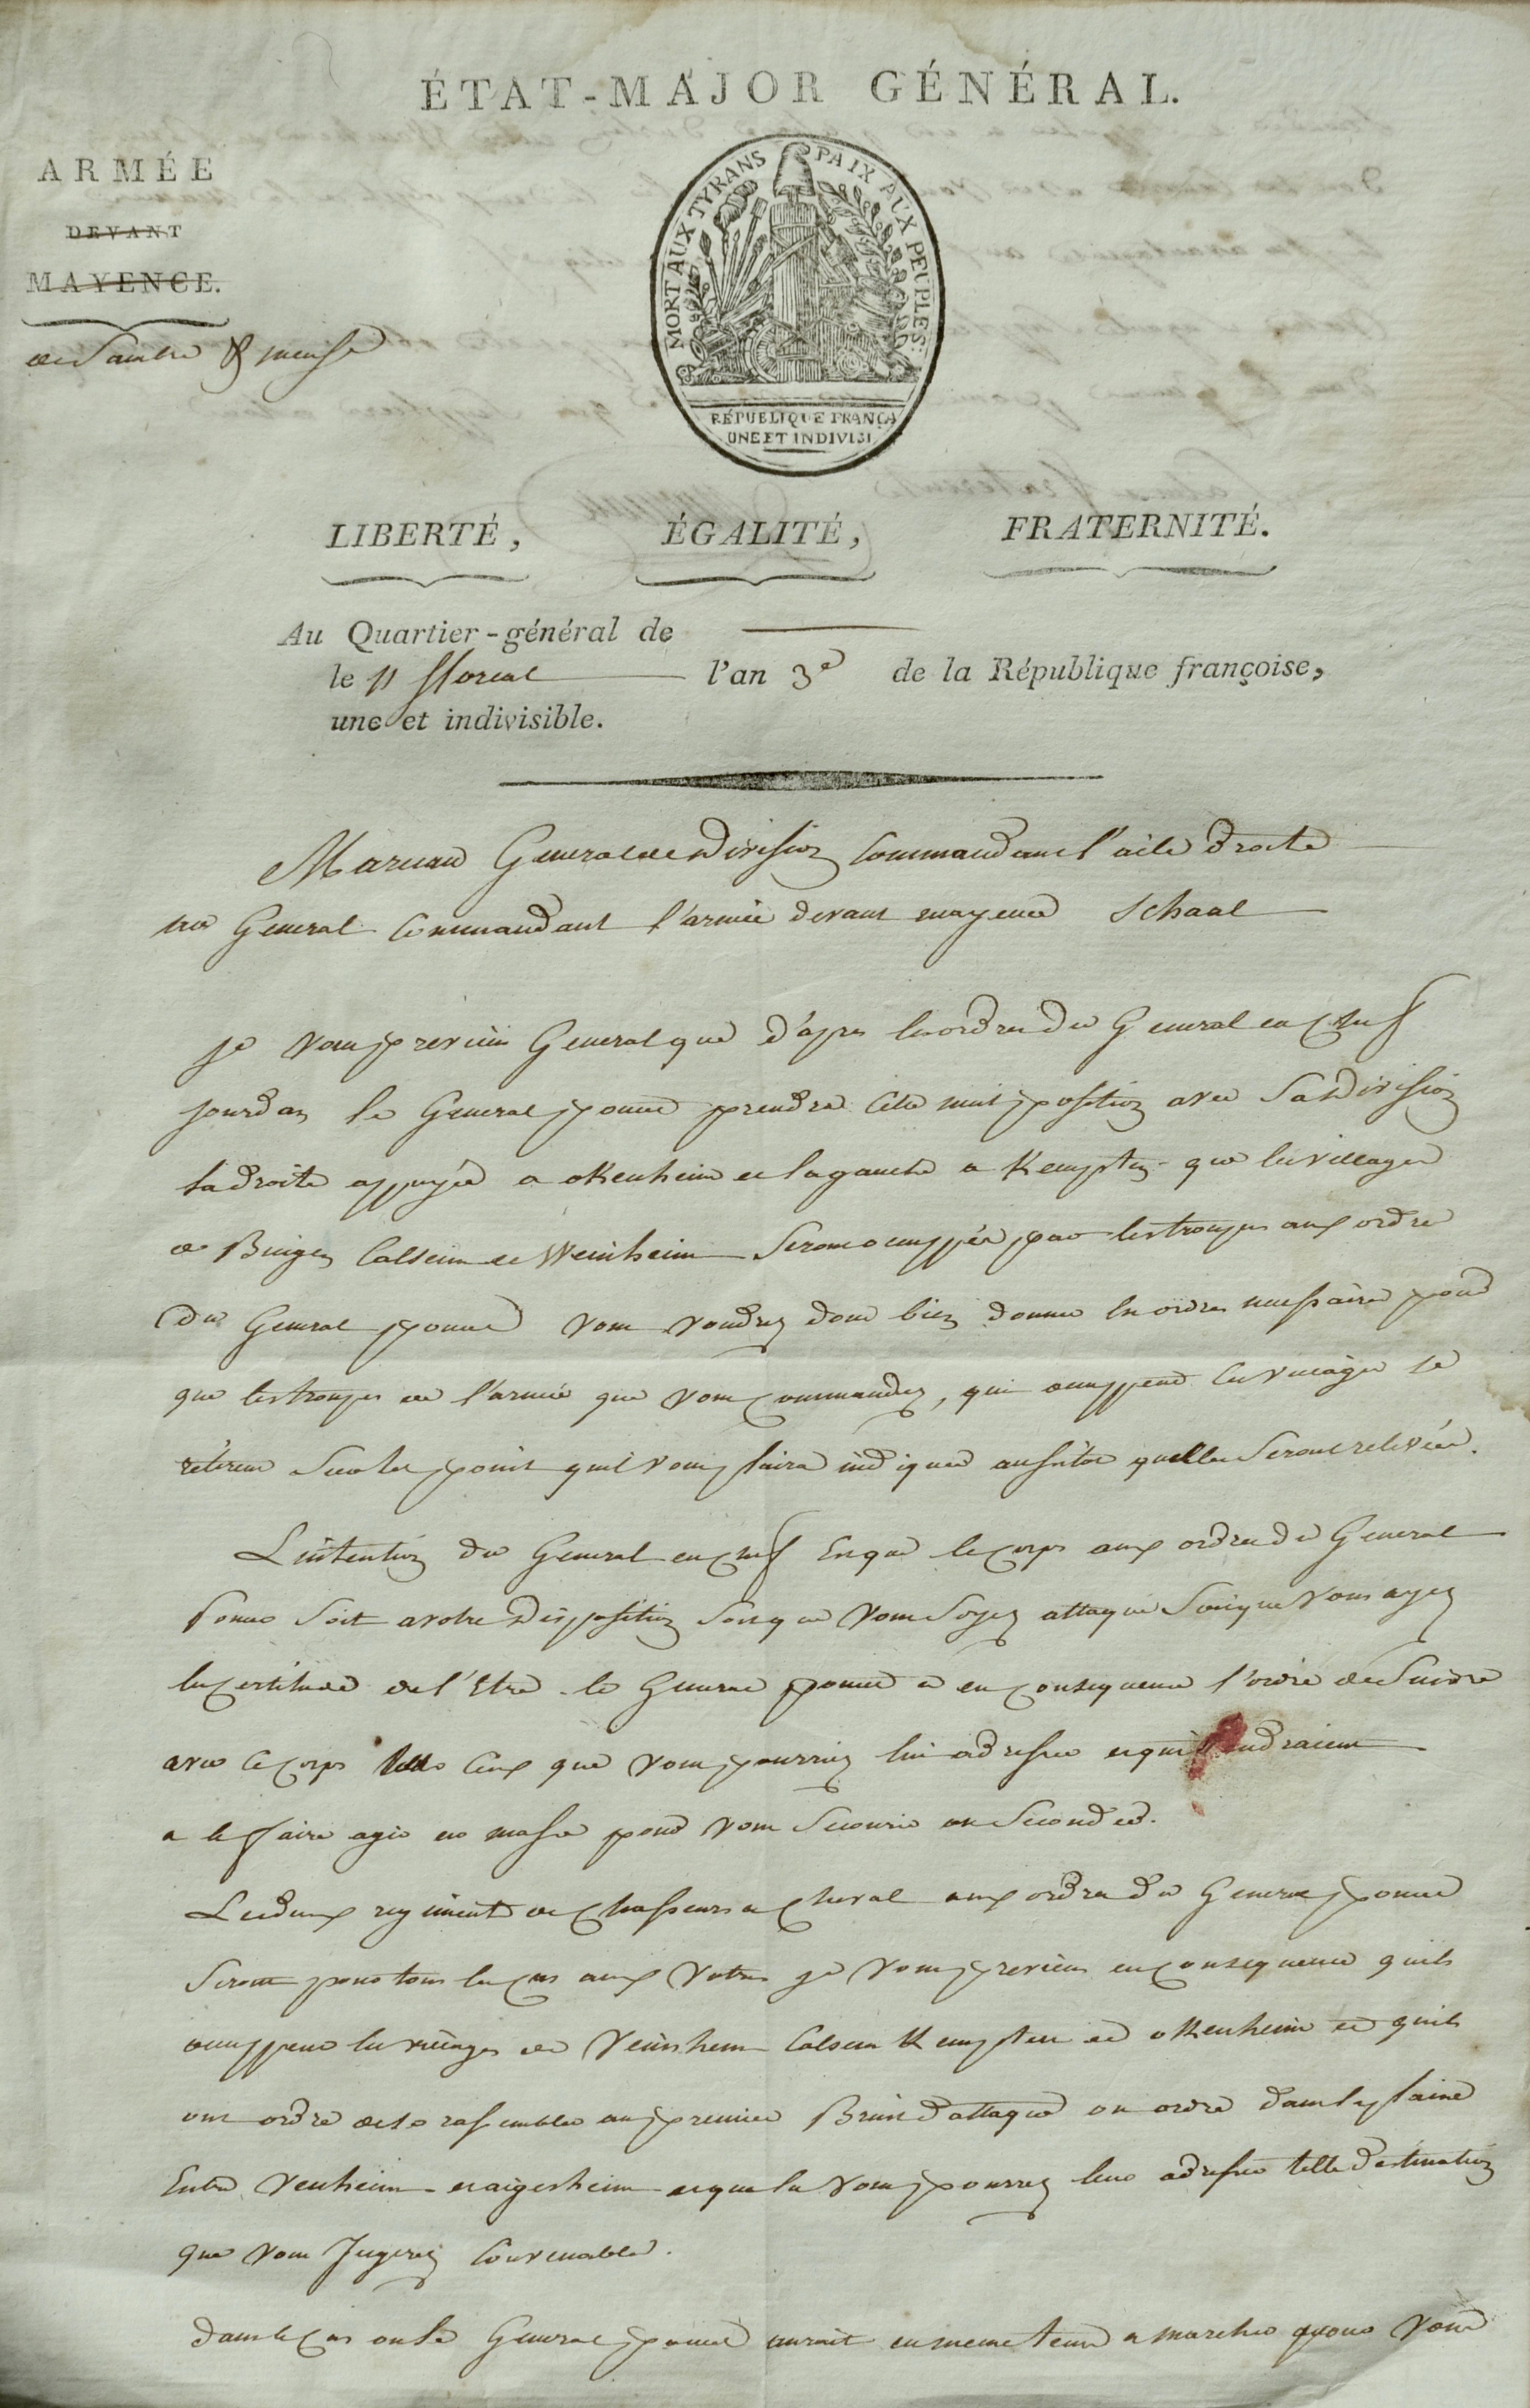 ÉTAT-MAJOR GÉNÉRAL.
ARMÉE
DEVANT
MAYENCE.
de Sambre & meuse
MORT AUX TYRANS PAIX AUX PEUPLES
RÉPUBLIQUE FRANÇA
UNE ET INDIVISI
LIBERTÉ, ÉGALITÉ, FRATERNITÉ.
Au Quartier-général de
le 11 floreal l'an 3e de la République françoise,
une et indivisible.
Marceau General de Division Commandant l'aile droite
au General Commandant l'armée devant mayence Schaal
je vous previens General que d'apres les ordres du General en chef
jourdan le General poncet prendra cette nuit position avec sa Division
la droite appuyée a okenheim et la gauche a Kempten que les villages
de Bingen Calseim et Weinheim seront occuppés par les troupes aux ordres
du General poncet vous voudrez donc bien donner les ordres necessaires pour
que les troupes de l'armée que vous commandez, qui occuppent ces villages se
retirent sur les points quil vous plaira indiquer ausitot quelles seront relevées.
L'intention du General en chef Est que le corps aux ordres du General
Poncet soit a votre disposition soit que vous soyez attaqué soit que vous ayez
la certitude de l'Etre le General poncet a en consequence l'ordre de suivre
avec ce corps ceux que vous pourriez lui adresser et qui tendraient
a le faire agir en masse pour vous secourir ou seconder.
Les deux regiments de chasseurs a cheval aux ordres du General poncet
seront pour tous les cas aux votres je vous previens en consequence quils
occuppent les villages de Veinheim Calseim Kempten et okenheim et quils
ont ordre de se rassembler au premier Bruit d'attaque ou ordre dans la plaine
Entre Venheim et aigesheim et que la vous pourrez leur adresser telle destination
que vous Jugerez Convenable.
dans le cas ou le General poncet aurait en meme tems a marcher pour vous